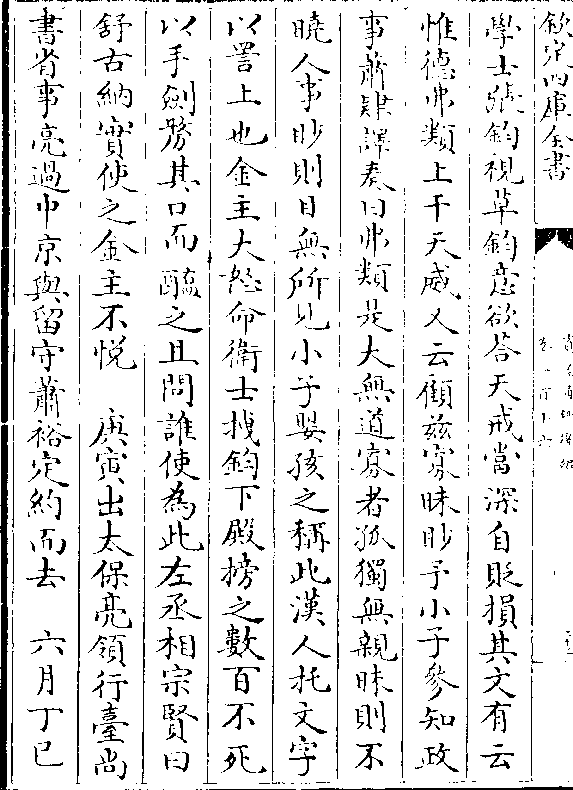 欽定四庫全書
學士張鈞視草鈞意欲荅天戒當深自貶損其文有云
惟德弗類上干天威又云顧兹寡昧眇予小子參知政
事蕭肄譯奏曰弗類是大無道寡者孤獨無親昧則不
曉人事眇則目無所見小子嬰孩之稱此漢人托文字
以詈上也金主大怒命衛士拽鈞下殿搒之數百不死
以手劍剺其口而醢之且問誰使為此左丞相宗賢曰
舒古納實使之金主不悦　庚寅出太保亮領行臺尚
書省事亮過中京與留守蕭裕定約而去　六月丁巳